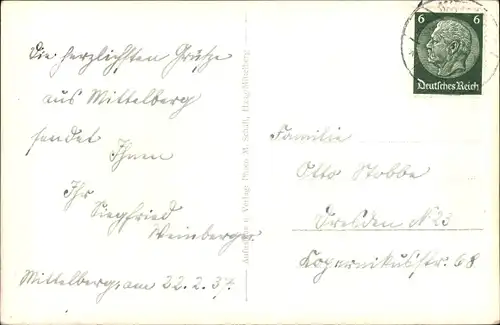 Die herzlichsten Grüße
aus Mittelberg
sendet
Ihnen
Ihr Siegfried
Weinberger
Mittelberg, am 22.2.37.
Verlag Photo M.
6 6
Deutsches Reich
Familie
Otto Stobbe
Dresden N 23
Kopernikusstr. 68